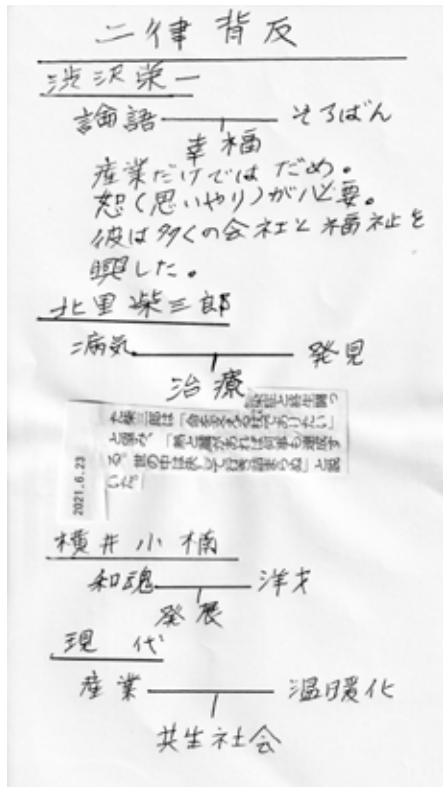 二律背反
渋沢栄一
論語 そろばん
幸福
産業だけではだめ。
恕(思いやり)が必要。
彼は多くの会社と福祉を
興した。
北里柴三郎
病気 発見
治療
2021.6.23
横井小楠
和魂 洋才
発展
現代
産業 温暖化
共生社会